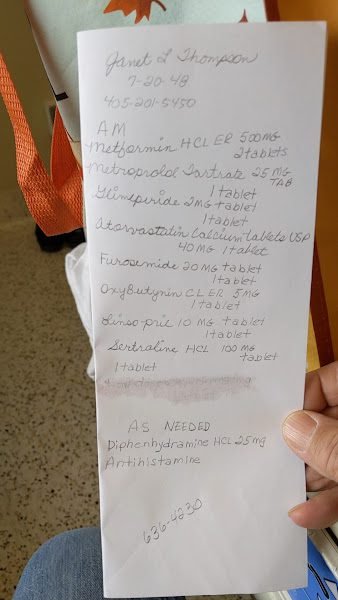 Janet L Thompson
7-20-48
405-201-5450
AM
Metformin HCL ER 500MG
2tablets
Metroprolol Tartrate 25 MG
TAB
1tablet
Glimipiride 2MG tablet
1tablet
Atorvastatin Calcium tablets USP
40 MG 1tablet
Furosemide 20 MG tablet
1tablet
OxyButynin CL ER 5MG
1tablet
Linso-pril 10 MG tablet
1tablet
Sertraline HCL 100 MG
tablet
1tablet
AS NEEDED
Diphenhydramine HCL 25mg
Antihistamine
636-4230